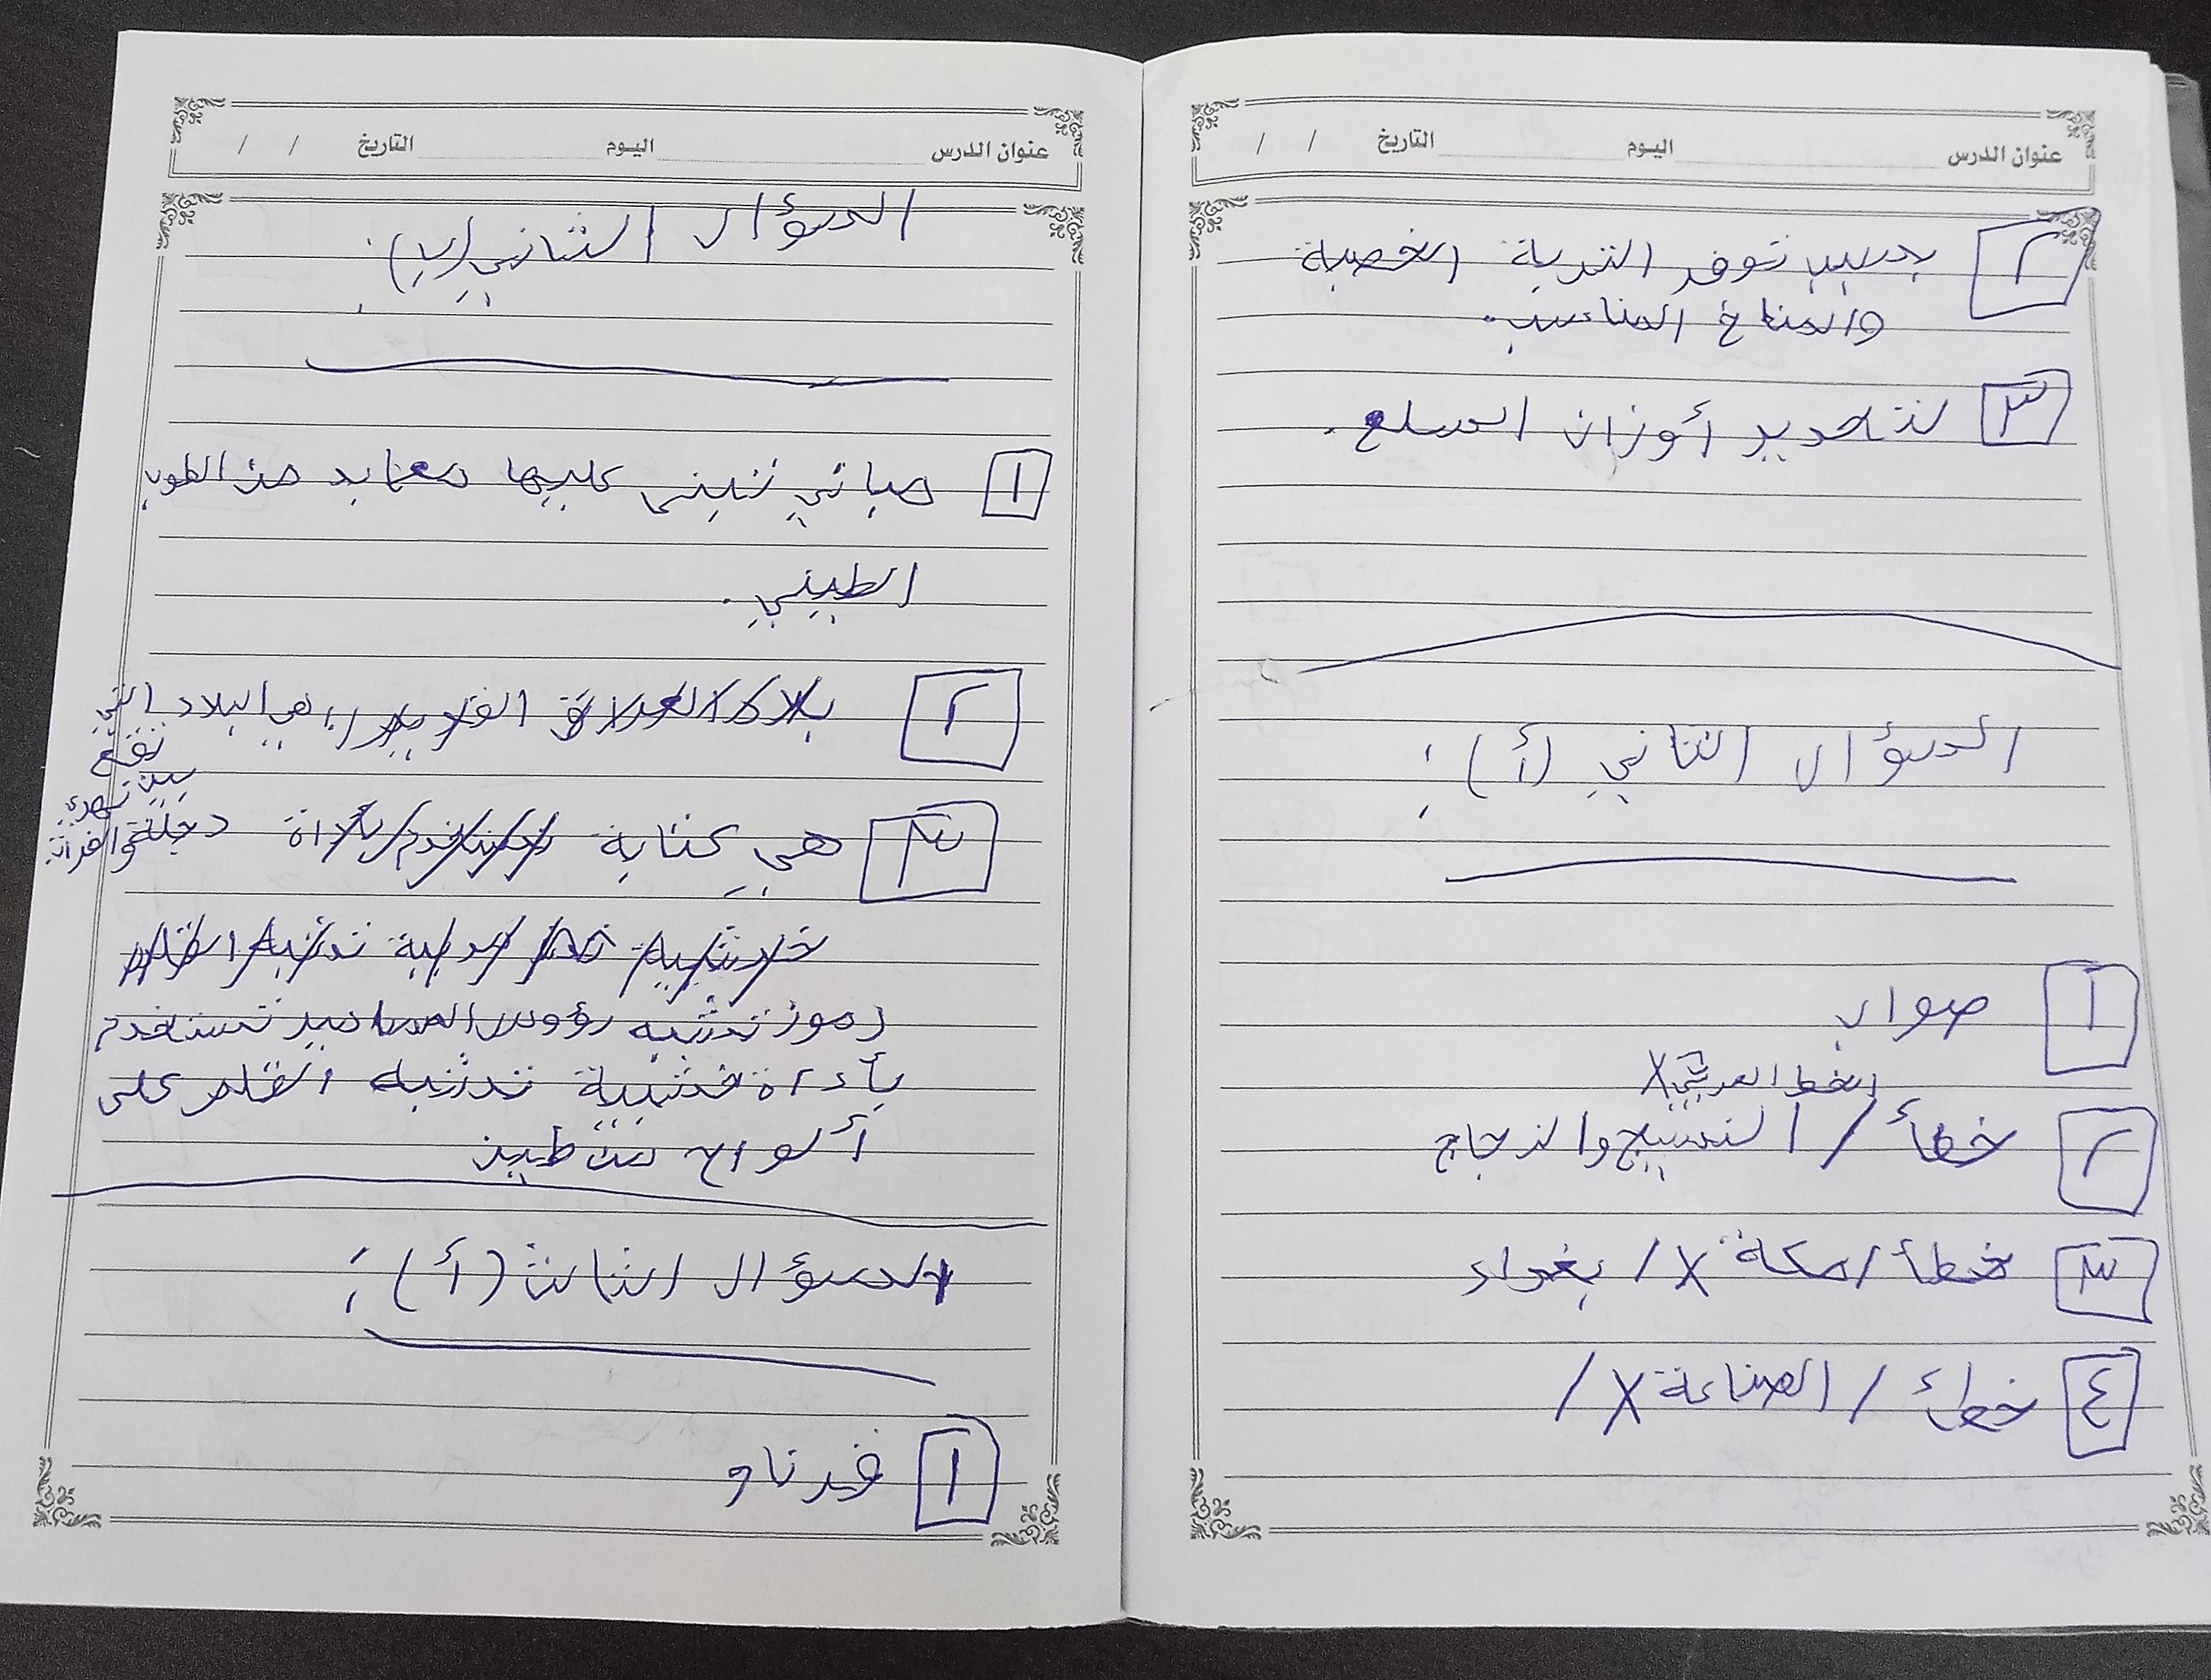 عنوان الدرس اليوم التاريخ / /
٢ بسبب توفر التربة الخصبة
والمناخ المناسب.
٣ لتحديد أوزان السلع.
السؤال الثاني (أ):
١ صواب
الخط العربي X
٢ خطأ / النسيج والزجاج
٣ خطأ / مكة X / بغداد
٤ خطأ / الصناعة X /
عنوان الدرس اليوم التاريخ / /
السؤال الثاني (ب):
١ مباني تبنى عليها معابد من الطوب
الطيني.
٢ هي البلاد التي
تقع
بين نهري
دجلة والفرات.
٣ هي كتابة
رموز تشبه رؤوس المسامير تستخدم
بأداة خشبية تشبه القلم على
ألواح من طين
السؤال الثالث (أ):
١